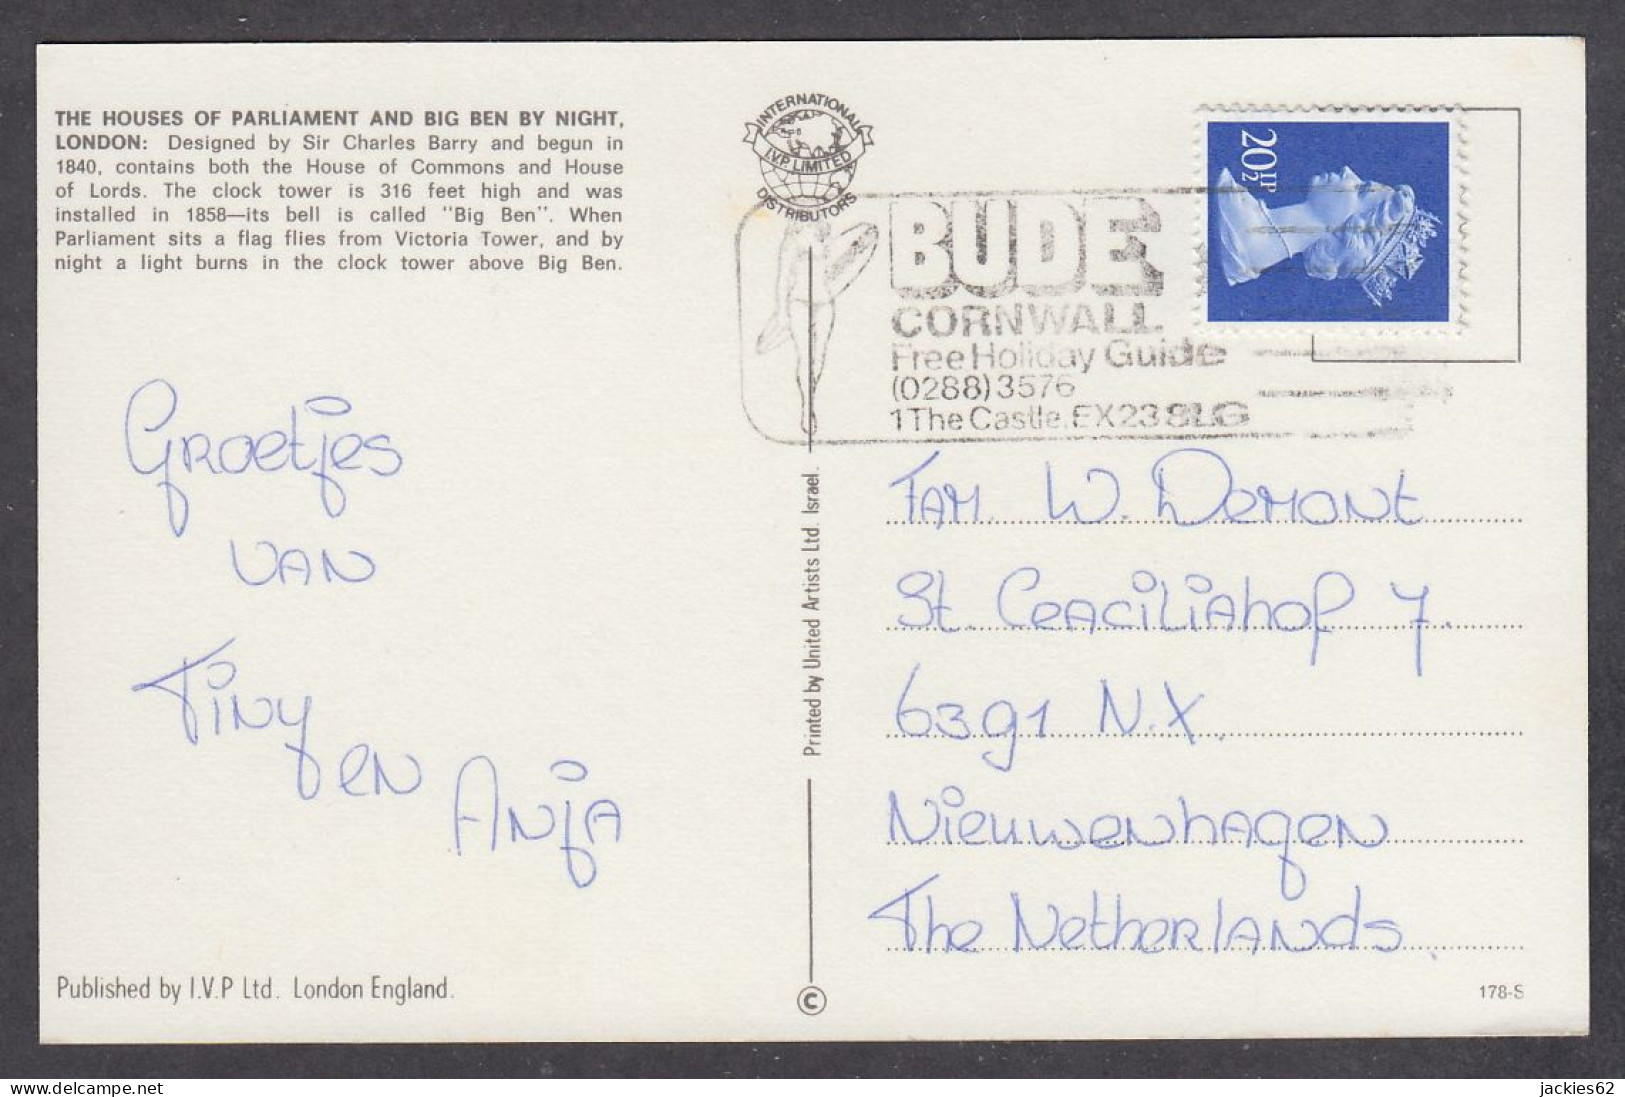 THE HOUSES OF PARLIAMENT AND BIG BEN BY NIGHT,
LONDON: Designed by Sir Charles Barry and begun in
1840, contains both the House of Commons and House
of Lords. The clock tower is 316 feet high and was
installed in 1858—its bell is called "Big Ben". When
Parliament sits a flag flies from Victoria Tower, and by
night a light burns in the clock tower above Big Ben.
INTERNATIONAL
I.V.P. LIMITED
DISTRIBUTORS
20½P
BUDE
CORNWALL
Free Holiday Guide
(0288) 3576
1 The Castle, EX23 8LG
Groetjes
van
Tiny
en
Anja
Printed by United Artists Ltd. Israel.
Fam. W. Demont
St. Ceaciliahof 7.
6391 N.X.
Nieuwenhagen
The Netherlands.
Published by I.V.P Ltd. London England.
©
178-S
delcampe.net
jackies62